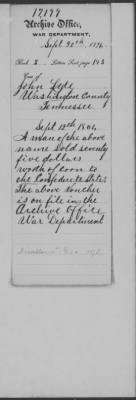 17199
Archive Office,
WAR DEPARTMENT,
Sept 20th, 1876
Book 2 Letters Sent, page 143
John
Washington County
Tennessee
Sept 12th 1864
A man of the above
name Sold seventy
five dollars
worth of corn to
the Confederate States
The above voucher
is on file in the
Archive Office
War Department